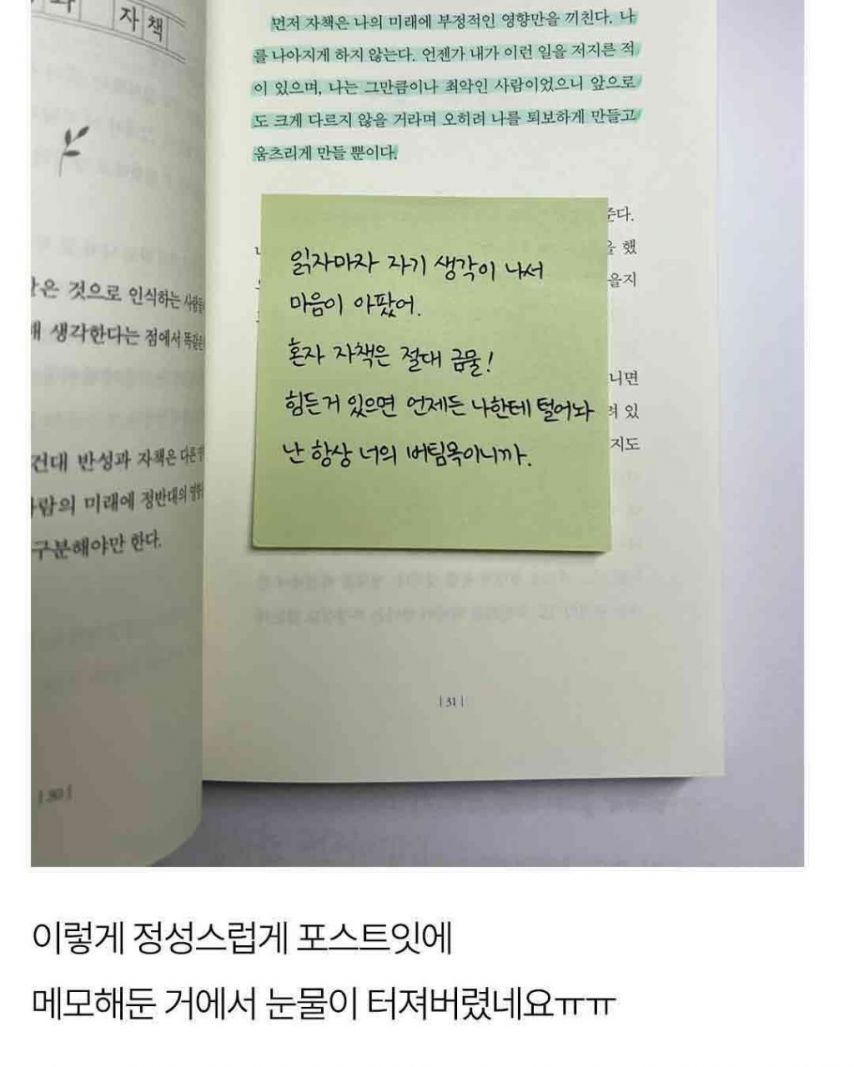 자책
은 것으로 인식하는 사람들
생각한다는 점에서
건대 반성과 자책은 다른
사람의 미래에 정반대의
구분해야만 한다.
|30|
먼저 자책은 나의 미래에 부정적인 영향만을 끼친다. 나
를 나아지게 하지 않는다. 언젠가 내가 이런 일을 저지른 적
이 있으며, 나는 그만큼이나 최악인 사람이었으니 앞으로
도 크게 다르지 않을 거라며 오히려 나를 퇴보하게 만들고
움츠리게 만들 뿐이다.
준다.
을 했
을지
니면
려 있
지도
읽자마자 자기 생각이 나서
마음이 아팠어.
혼자 자책은 절대 금물!
힘든거 있으면 언제든 나한테 털어놔
난 항상 너의 버팀목이니까.
|31|
이렇게 정성스럽게 포스트잇에
메모해둔 거에서 눈물이 터져버렸네요ㅠㅠ